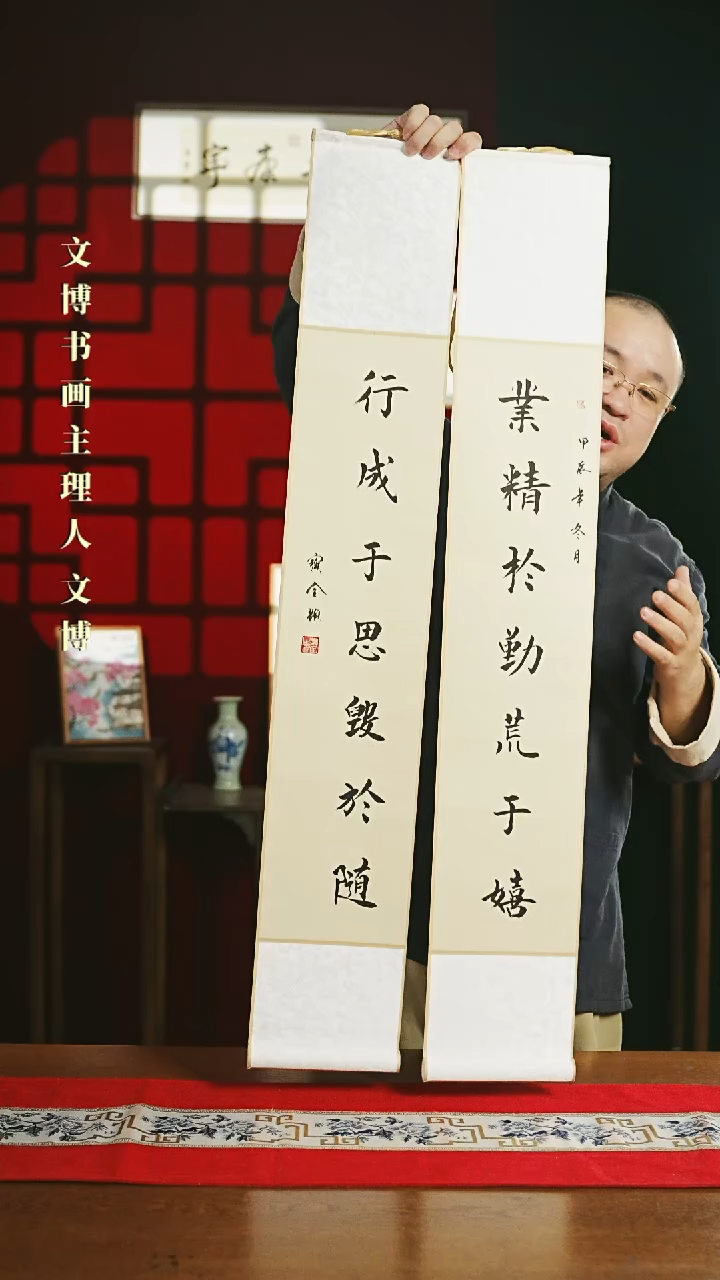 文博书画主理人文博
業精於勤荒于嬉
甲辰年冬月
行成于思毀於随